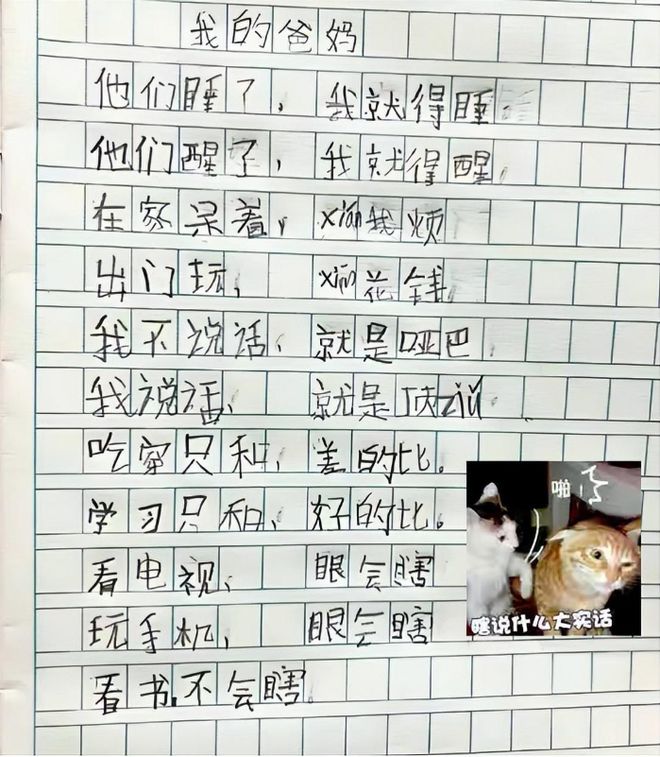 我的爸妈
他们睡了，我就得睡。
他们醒了，我就得醒。
在家呆着，xián我烦
出门玩，xián花钱，
我不说话，就是哑巴。
我说话，就是顶zuǐ
吃穿只和，差的比。
学习只和，好的比。
看电视，眼会瞎
玩手机，眼会瞎
看书不会瞎。
啪
瞎说什么大实话